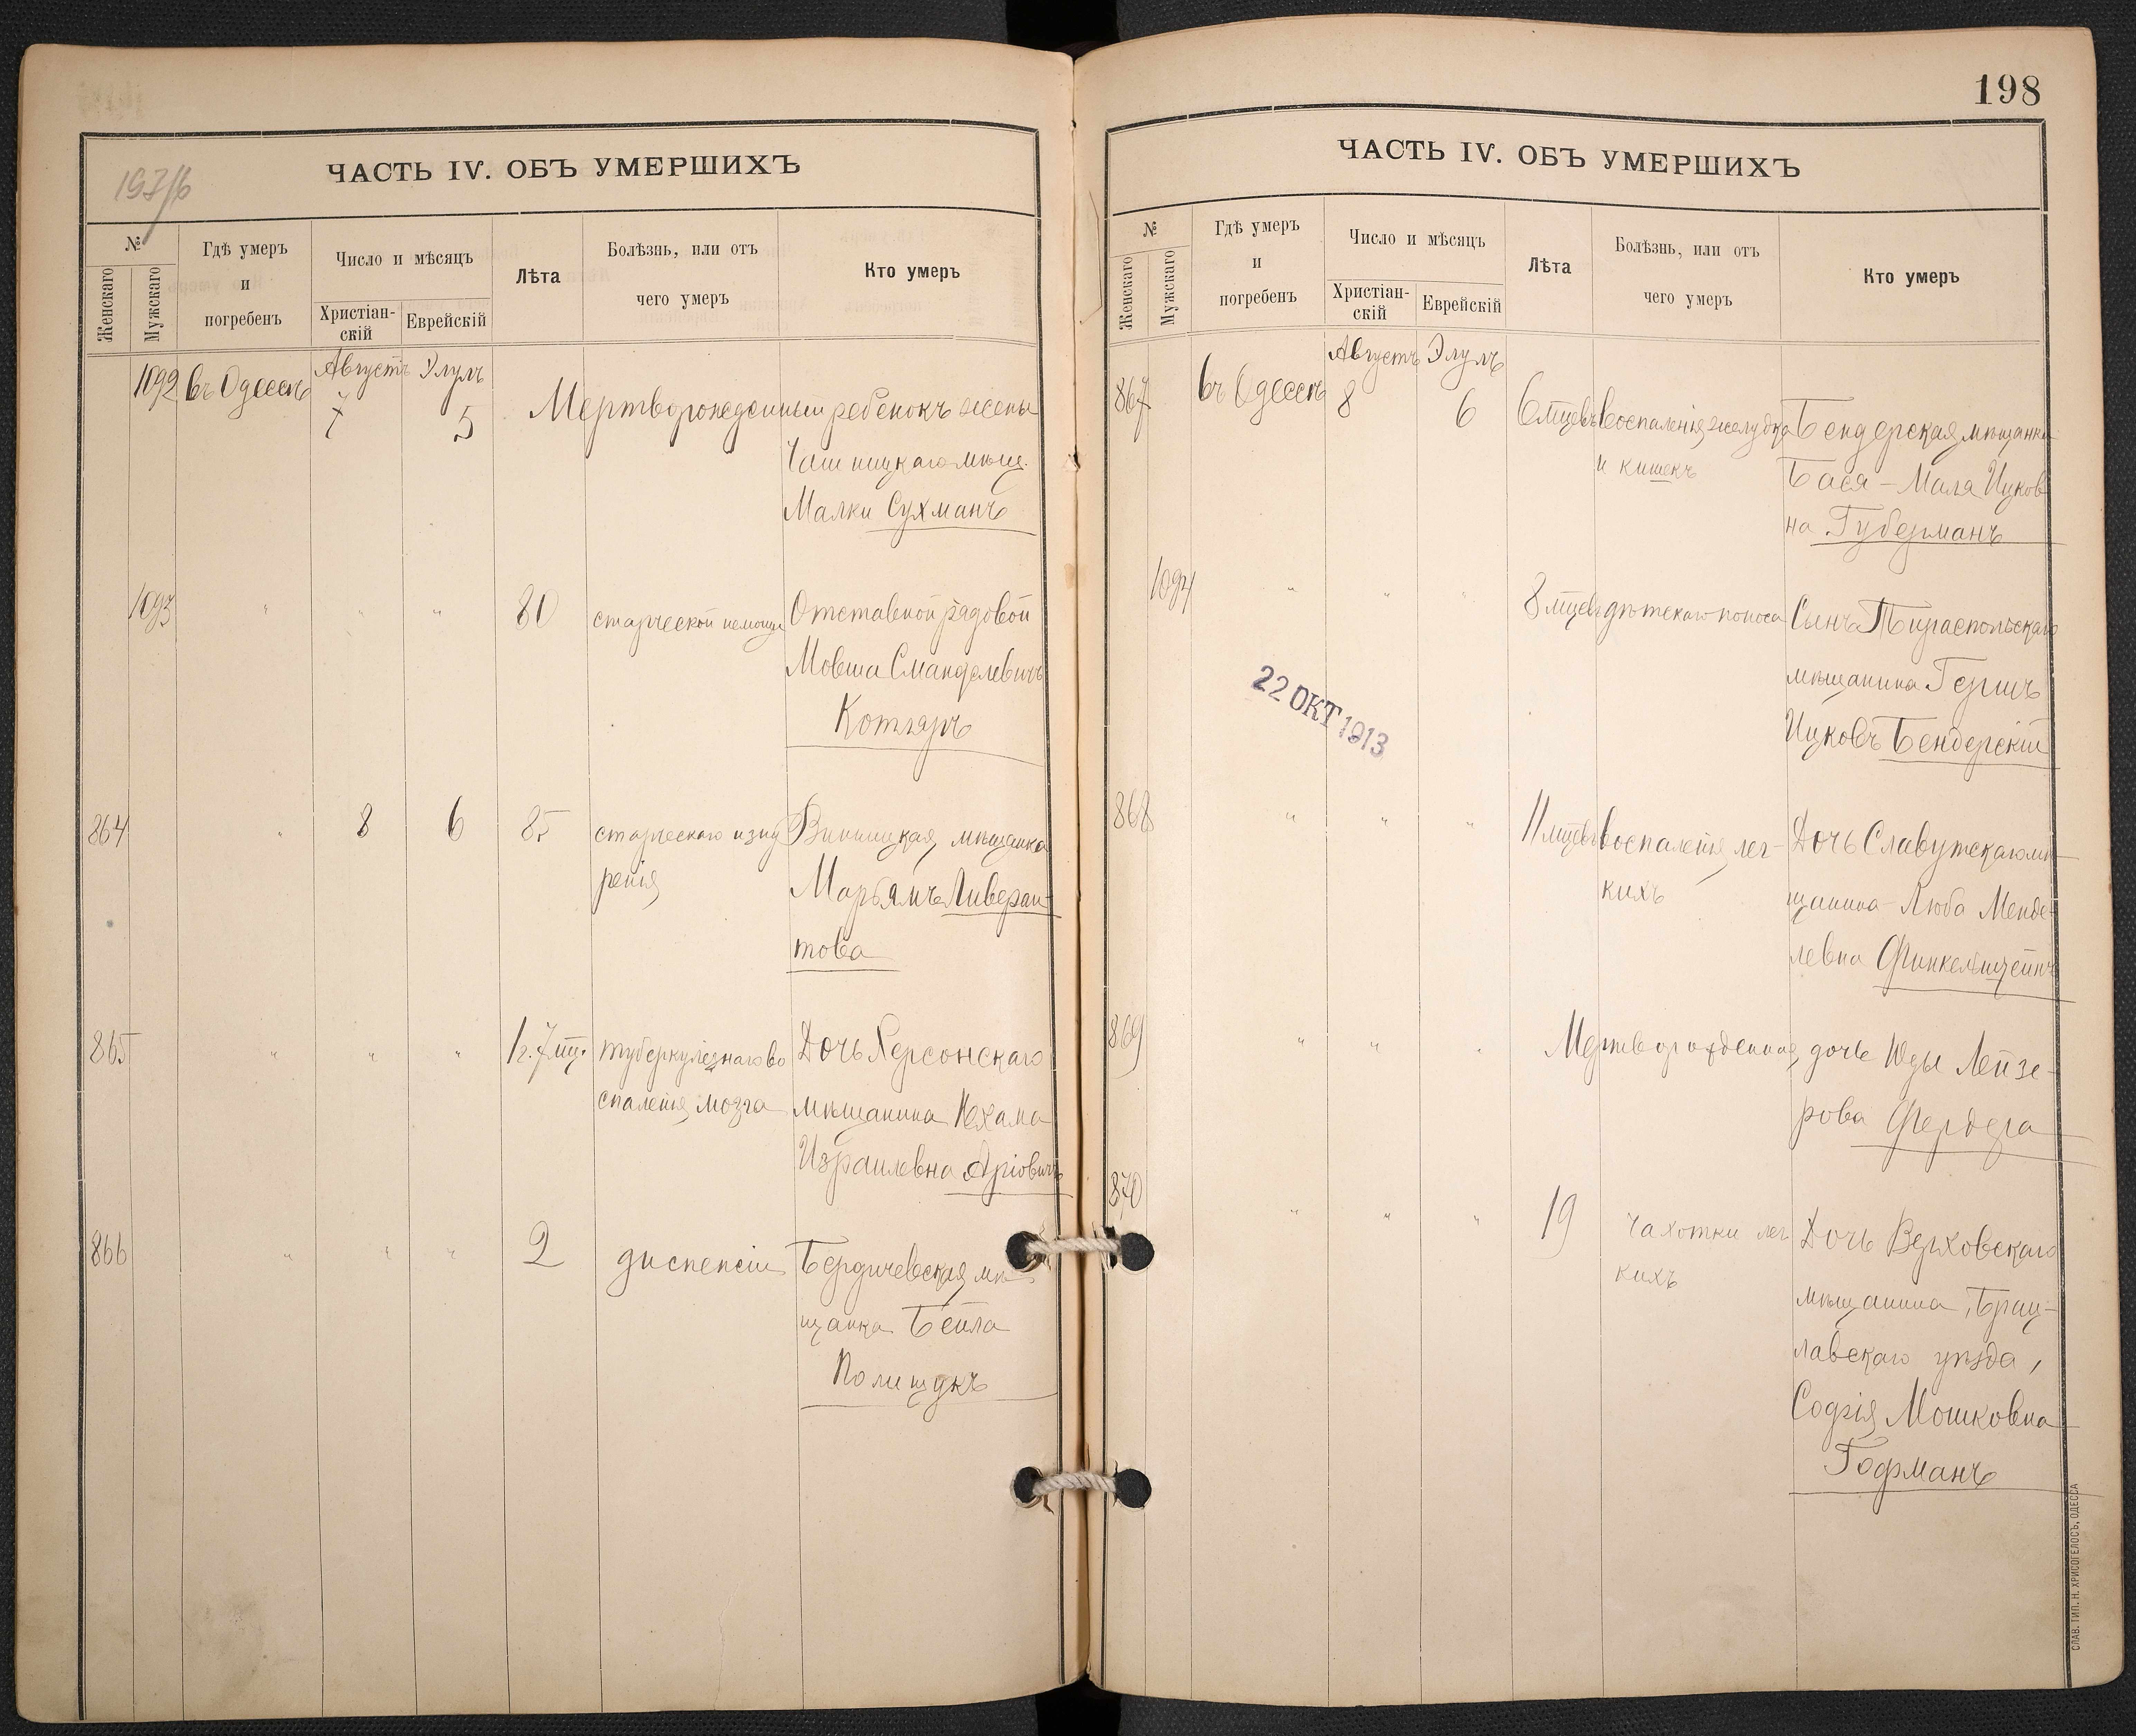 197/б
ЧАСТЬ IV. ОБЪ УМЕРШИХЪ
№
Женскаго
Мужскаго
Гдѣ умеръ
и
погребенъ
Число и мѣсяцъ
Христіан-
скій
Еврейскій
Лѣта
Болѣзнь, или отъ
чего умеръ
Кто умеръ
Августъ Элулъ
1092 въ Одессѣ 7 5 Мертворожденный ребенокъ жены
мѣщ.
Малки Сухманъ
1093 " " " 80 старческой немощи Отставной рядовой
Мовша Смандлевичъ
Котляръ
864 " 8 6 85 старческаго изну Винницкая мѣщанка
ренія Марьямъ Ливеран-
това
865 " " " 1 г. 7 мц. туберкулезнаго во Дочь Херсонскаго
спаленія мозга мѣщанина Нехама
Израилевна Аріовичъ
866 " " " 2 диспепсіи Бердичевская мѣ-
щанка Бейла
Полищукъ
198
ЧАСТЬ IV. ОБЪ УМЕРШИХЪ
№
Женскаго
Мужскаго
Гдѣ умеръ
и
погребенъ
Число и мѣсяцъ
Христіан-
скій
Еврейскій
Лѣта
Болѣзнь, или отъ
чего умеръ
Кто умеръ
Августъ Элулъ
867 въ Одессѣ 8 6 6 мцевъ воспаленія желудка Бендерская мѣщанка
и кишекъ Бася - Маля Ицков
на Губерманъ
1094 " " " 8 мцевъ дѣтскаго поноса Сынъ Тираспольскаго
мѣщанина Гершъ
Ицковъ Бендерскій
22 ОКТ 1913
868 " " " 11 мцевъ воспаленія лег- Дочь Славутскаго мѣ-
кихъ щанина Люба Менде-
левна Финкельштейнъ
869 " " " Мертворожденная дочь Юды Лейзе-
рова Фердера
870 " " " 19 чахотки лег Дочь Верховскаго
кихъ мѣщанина, Брац-
лавскаго уѣзда,
Софія Мошковна
Гофманъ
СЛАВ. ТИП. Н. ХРИСОГЕЛОСЪ, ОДЕССА